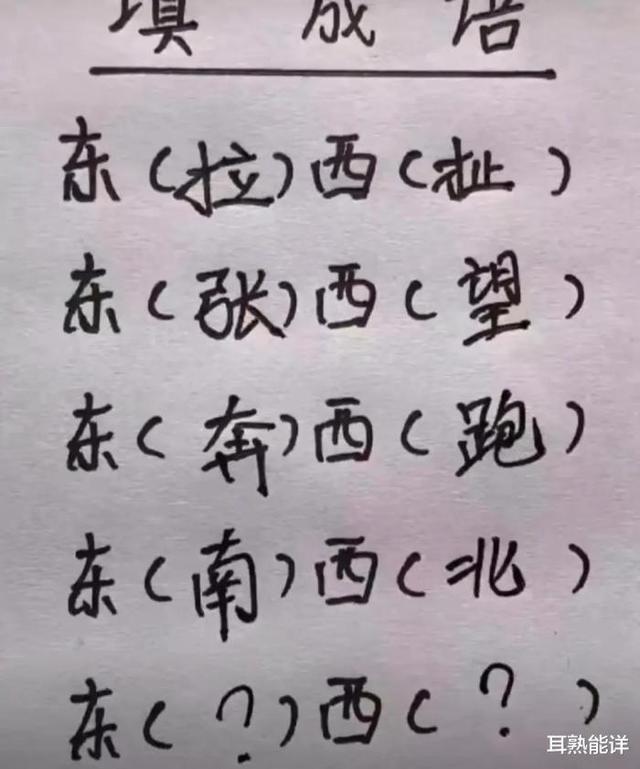 填成语
东(拉)西(扯)
东(张)西(望)
东(奔)西(跑)
东(南)西(北)
东(?)西(?)
耳熟能详